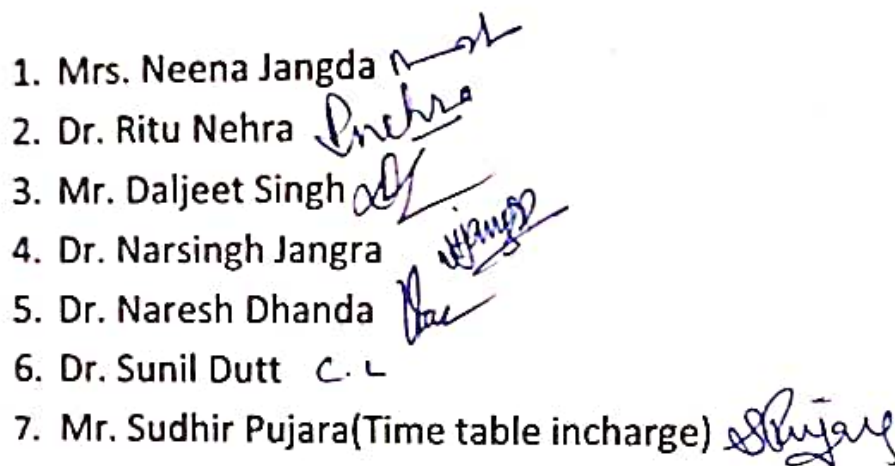 1. Mrs. Neena Jangda
2. Dr. Ritu Nehra
3. Mr. Daljeet Singh
4. Dr. Narsingh Jangra
5. Dr. Naresh Dhanda
6. Dr. Sunil Dutt C. L
7. Mr. Sudhir Pujara(Time table incharge) SPujara